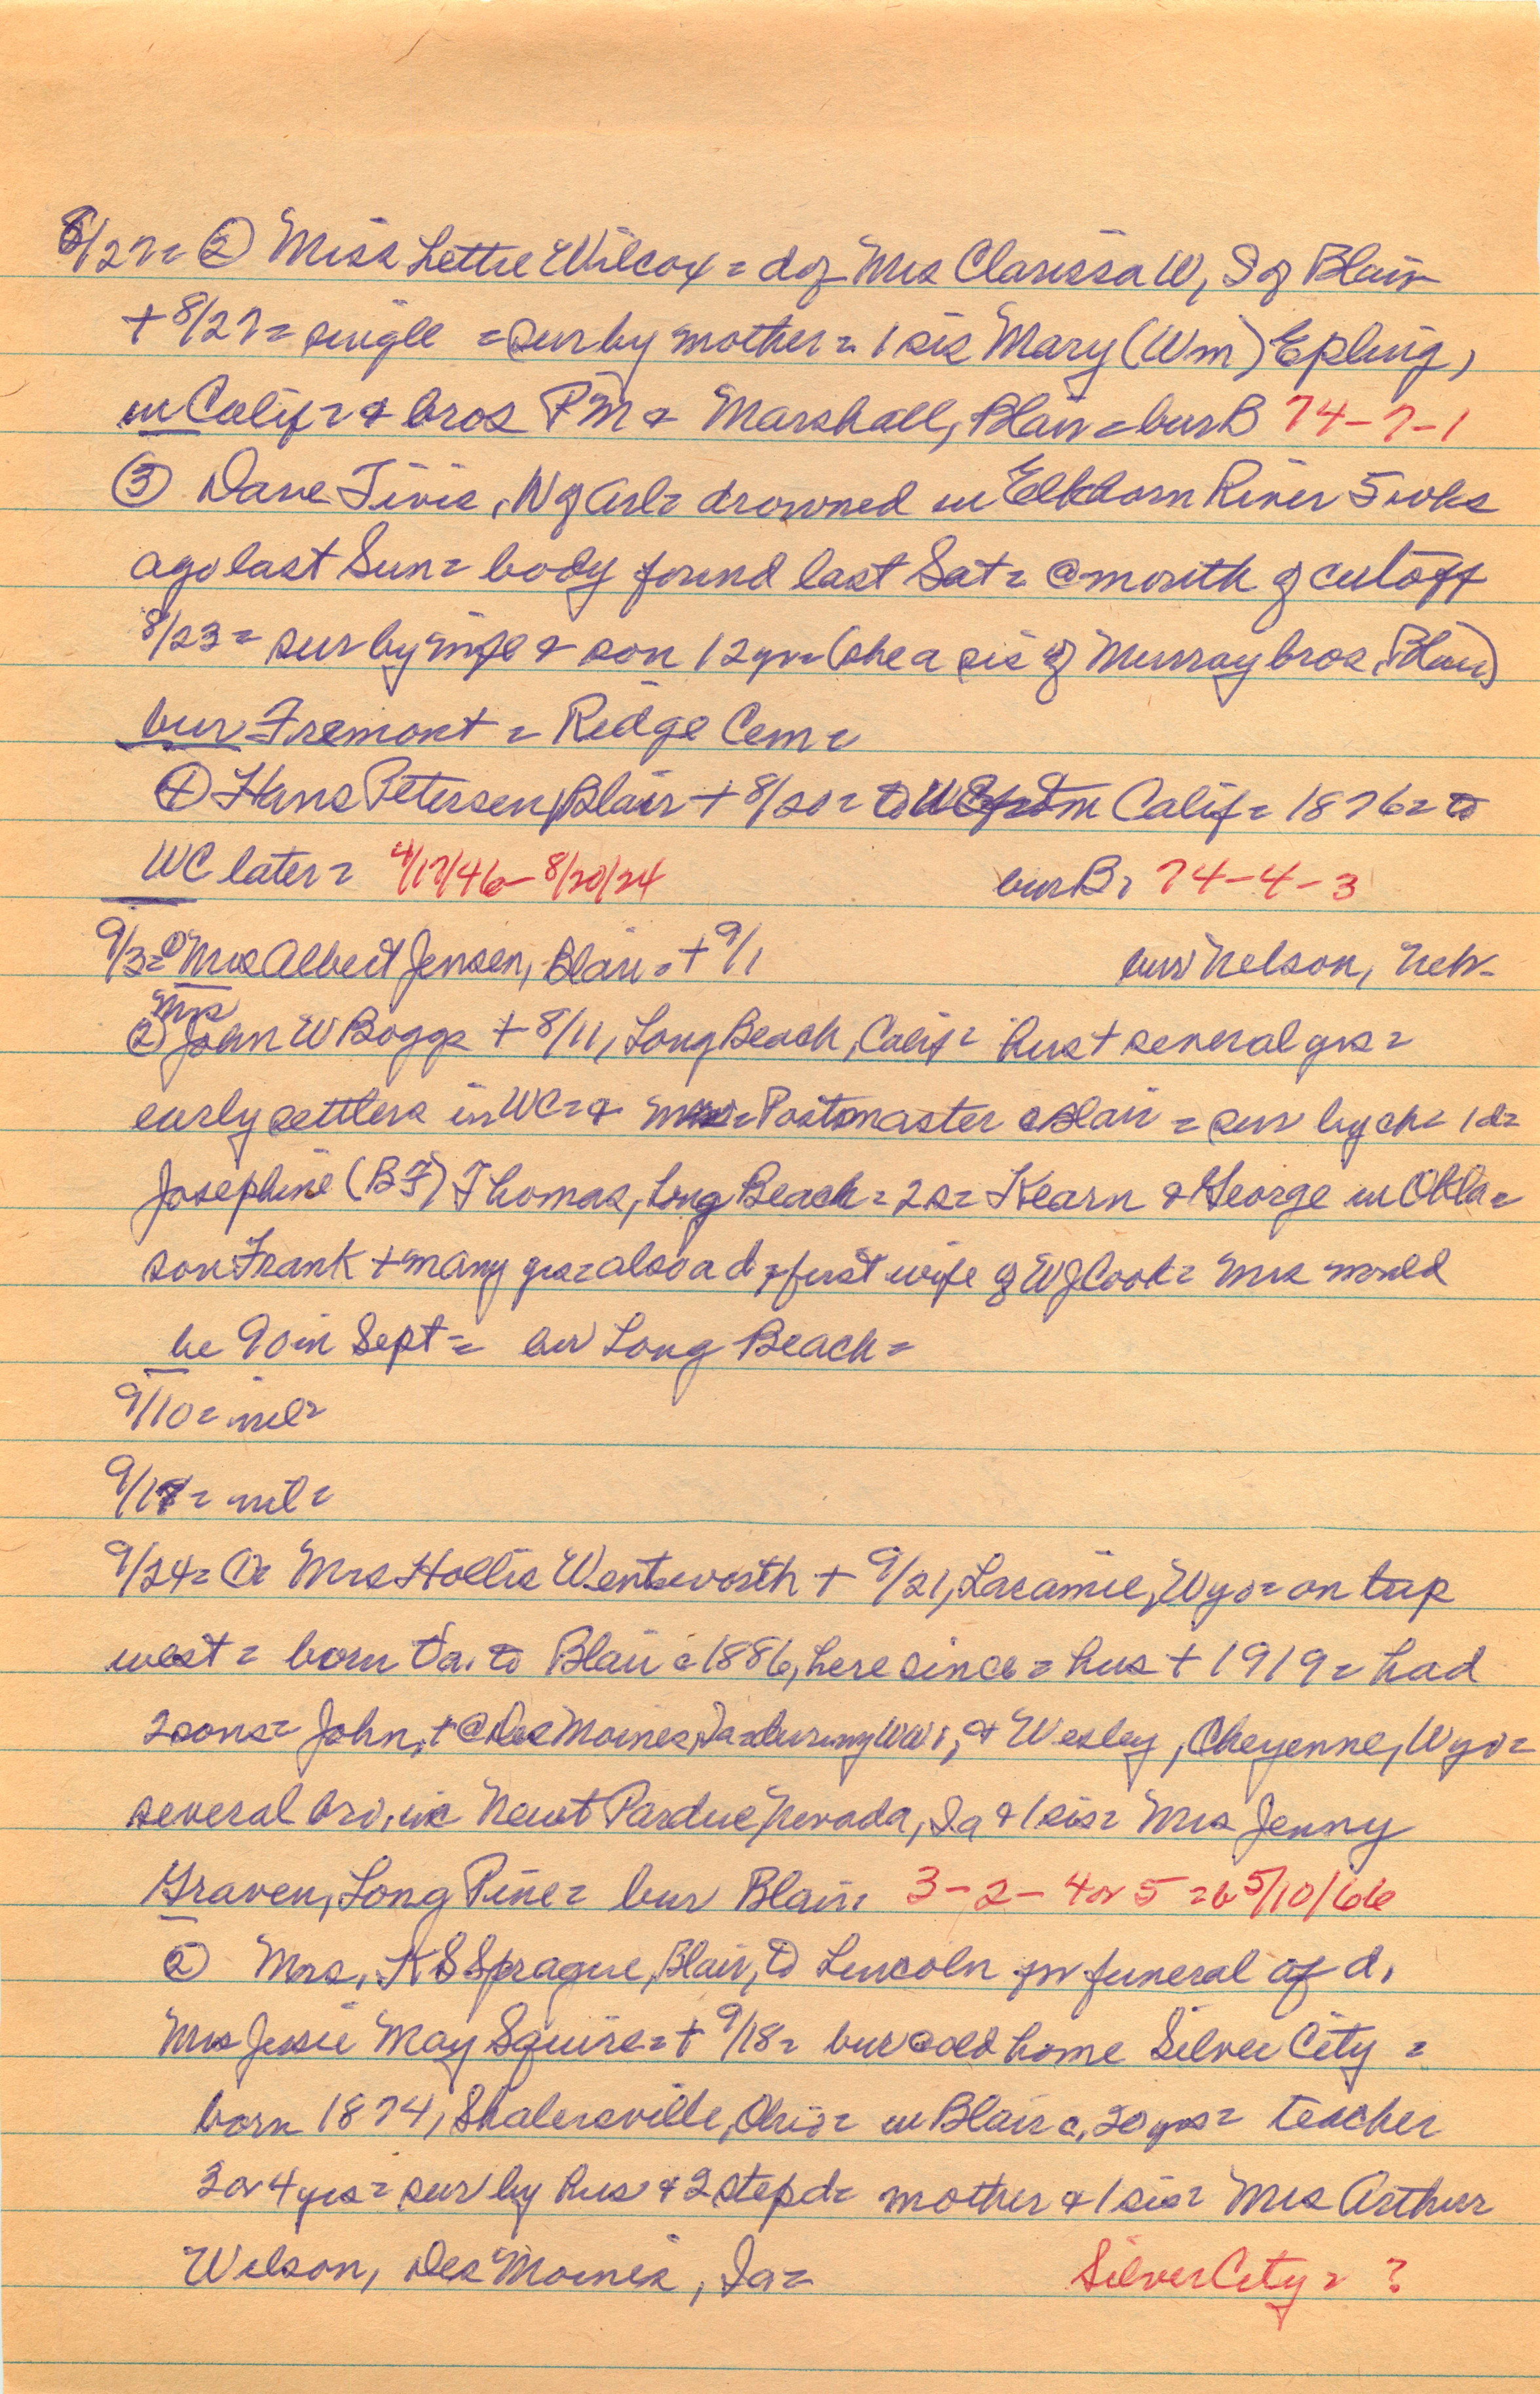 8/27= ② Miss Lettie Wilcox = d of Mrs Clarissa W, S of Blair
+ 8/27= single = sur by mother = 1 sis Mary (Wm) Epling,
in Calif = & bros PM & Marshall, Blair = bur B 74-7-1
③ Dave Tivis, N of Arl= drowned in Elkhorn River 5 wks
ago last Sun= body found last Sat= @ mouth of cutoff
8/23= sur by wife & son 12 yrs= (she a sis of Murray bros, Blair)
bur Fremont = Ridge Cem=
④ Hans Petersen, Blair + 8/20= to Calif= 1876= to
WC later= 4/17/46- 8/20/24 bur B, 74-4-3
9/3= ① Mrs Albert Jensen, Blair= + 9/1 bur Nelson, Neb-
② Mrs John W Boggs + 8/11, Long Beach, Calif= hus + several yrs=
early settlers in WC= & = Postmaster @ Blair = sur by ch= 1 d=
Josephine (BF) Thomas, Long Beach= 2 s= Kearn & George in Okla=
son Frank + many yrs= also a d, first wife of WJ Cook= Mrs would
be 90 in Sept= bur Long Beach=
9/10= nil=
9/17= nil=
9/24= ①= Mrs Hollis Wentworth + 9/21, Laramie, Wyo= on trip
west= born Ia. to Blair c 1886, here since= hus + 1919= had
2 sons= John, + @ Des Moines, Ia= during WW1, & Wesley, Cheyenne, Wyo=
several bro, inc Newt Pardue, Nevada, Ia & 1 sis= Mrs Jenny
Graven, Long Pine= bur Blair, 3-2-4 or 5 = b 5/10/66
② Mrs. K S Sprague, Blair, to Lincoln for funeral of d,
Mrs Jessie May Squire= + 9/18= bur @ old home Silver City =
born 1874, Shalersville, Ohio= in Blair c, 20 yrs= teacher
3 or 4 yrs= sur by hus & 2 step d= mother & 1 sis= Mrs Arthur
Wilson, Des Moines, Ia= Silver City= ?